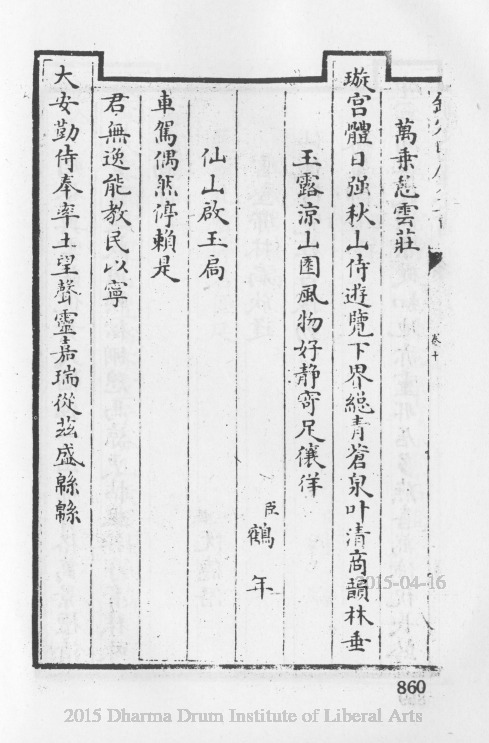 萬乗慈雲莊
璇宫體日强秋山侍遊覽下界緫青蒼泉叶清商韻林垂
玉露凉山園風物好静寄足儴徉
臣鶴年
仙山啟玉局
車駕偶然停賴是
君無逸能教民以寧
大安勤侍奉率土望聲靈嘉瑞從兹盛緜緜
卷十
2015-04-16
860
2015 Dharma Drum Institute of Liberal Arts